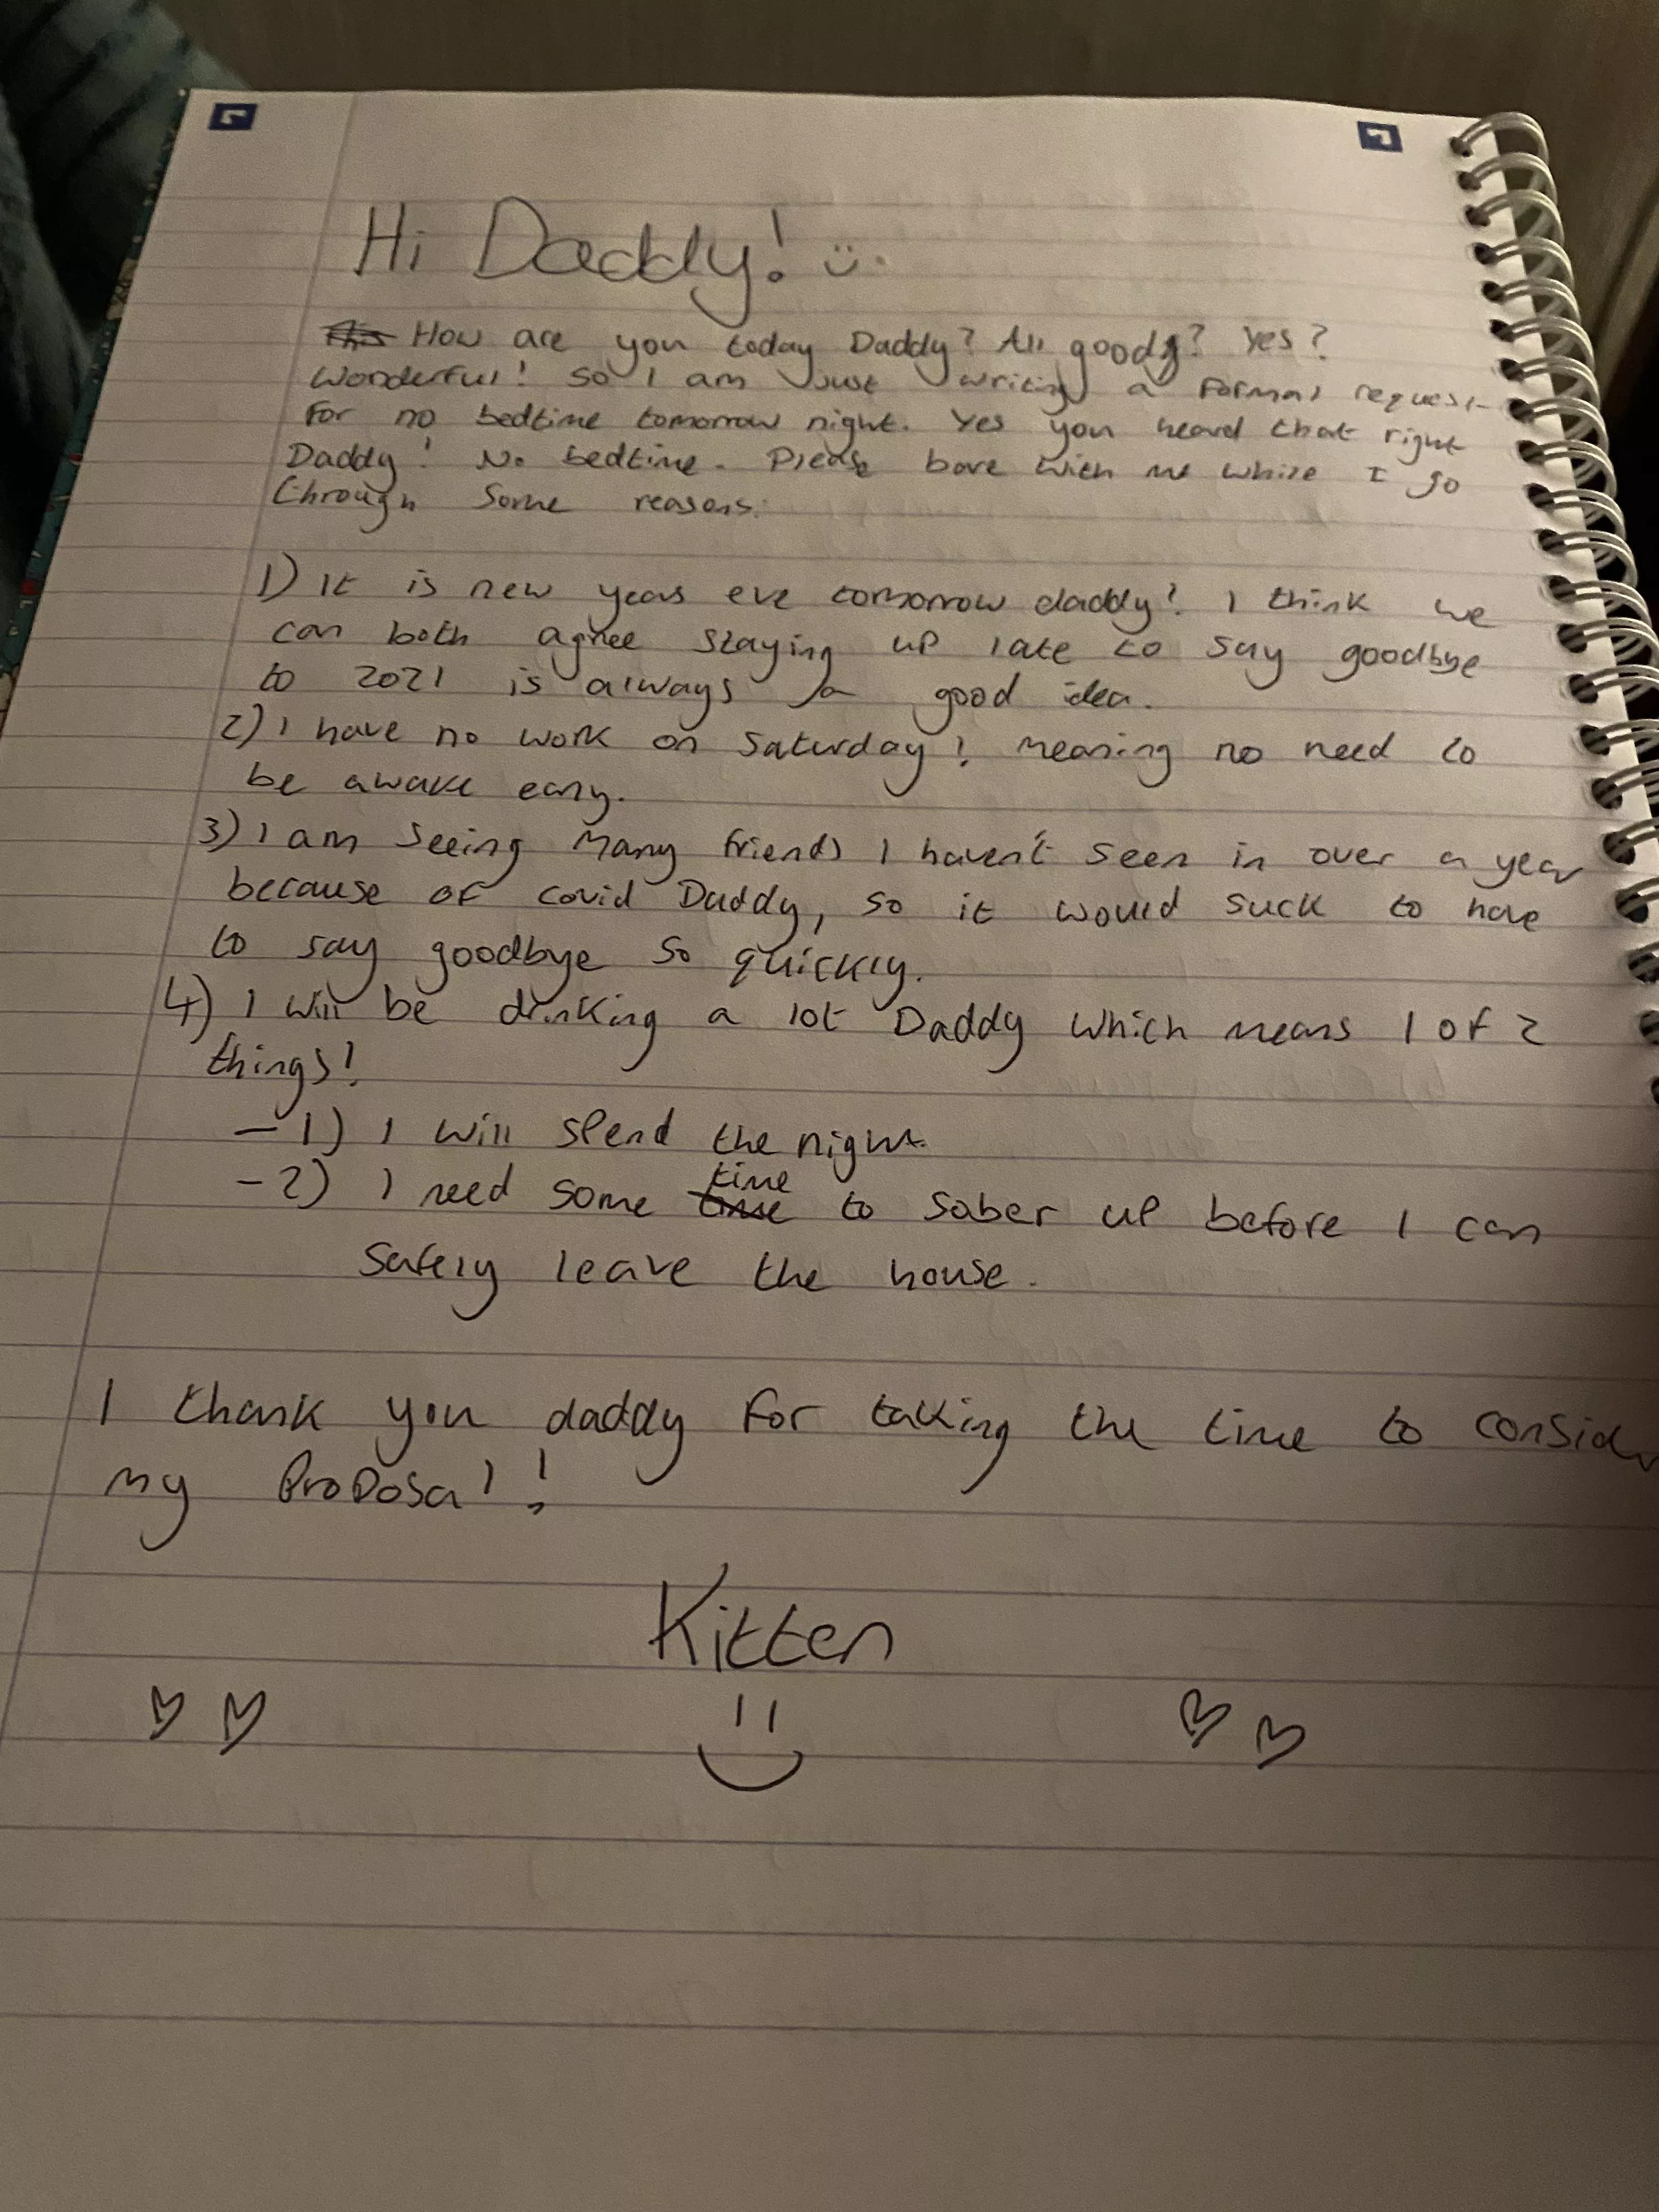 Hi Daddy! :)
How are you today Daddy? All goody? Yes?
Wonderful! So I am just writing a formal request
for no bedtime tomorrow night. Yes you heard that right
Daddy! No bedtime. Please bare with me while I go
through some reasons:
1) It is new years eve tomorrow daddy! I think we
can both agree staying up late to say goodbye
to 2021 is always a good idea.
2) I have no work on Saturday! Meaning no need to
be awake early.
3) I am seeing many friends I haven't seen in over a year
because of covid Daddy, so it would suck to have
to say goodbye so quickly.
4) I will be drinking a lot Daddy which means 1 of 2
things!
- 1) I will spend the night.
- 2) I need some time to sober up before I can
safely leave the house.
I thank you daddy for taking the time to consider
my proposal!
Kitten